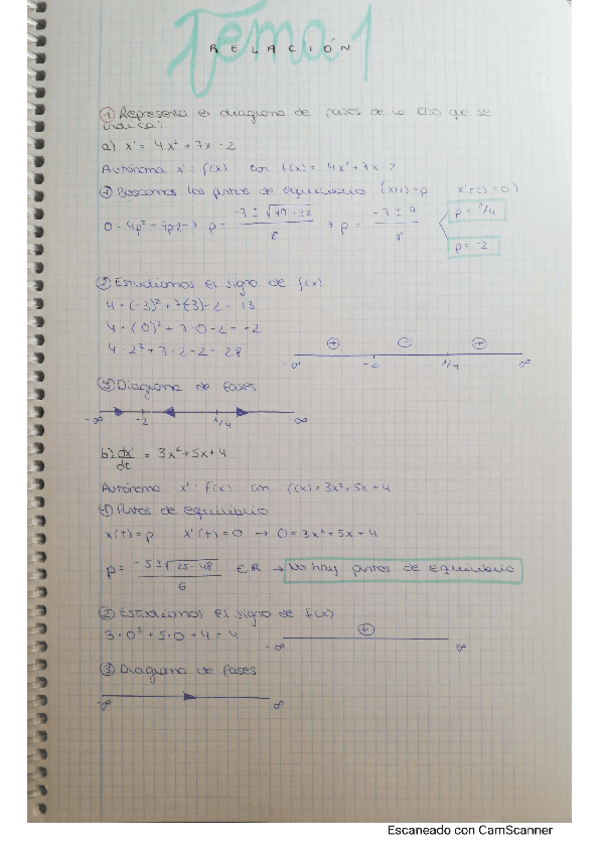 Tema 1
RELACIÓN
① Representa el diagrama de fases de la EDO que se
indica:
a) x' = 4x² + 7x - 2
Autónoma x' = f(x) con f(x) = 4x² + 7x - 2
① Buscamos los puntos de equilibrio (x(t) = p x'(t) = 0)
0 = 4p² + 7p - 2 → p = (-7 ± √(49 + 32)) / 8 → p = (-7 ± 9) / 8
p = 1/4
p = -2
② Estudiamos el signo de f(x)
4 · (-3)² + 7(-3) - 2 = 13
4 · (0)² + 7 · 0 - 2 = -2
4 · 2² + 7 · 2 - 2 = 28
⊕ ⊖ ⊕
-∞ -2 1/4 ∞
③ Diagrama de fases
-∞ -2 1/4 ∞
b) dx/dt = 3x² + 5x + 4
Autónoma x' = f(x) con f(x) = 3x² + 5x + 4
① Puntos de equilibrio
x(t) = p x'(t) = 0 → 0 = 3x² + 5x + 4
p = (-5 ± √(25 - 48)) / 6 ∈ R → No hay puntos de equilibrio
② Estudiamos el signo de f(x)
3 · 0² + 5 · 0 + 4 = 4
⊕
-∞ ∞
③ Diagrama de fases
-∞ ∞
Escaneado con CamScanner